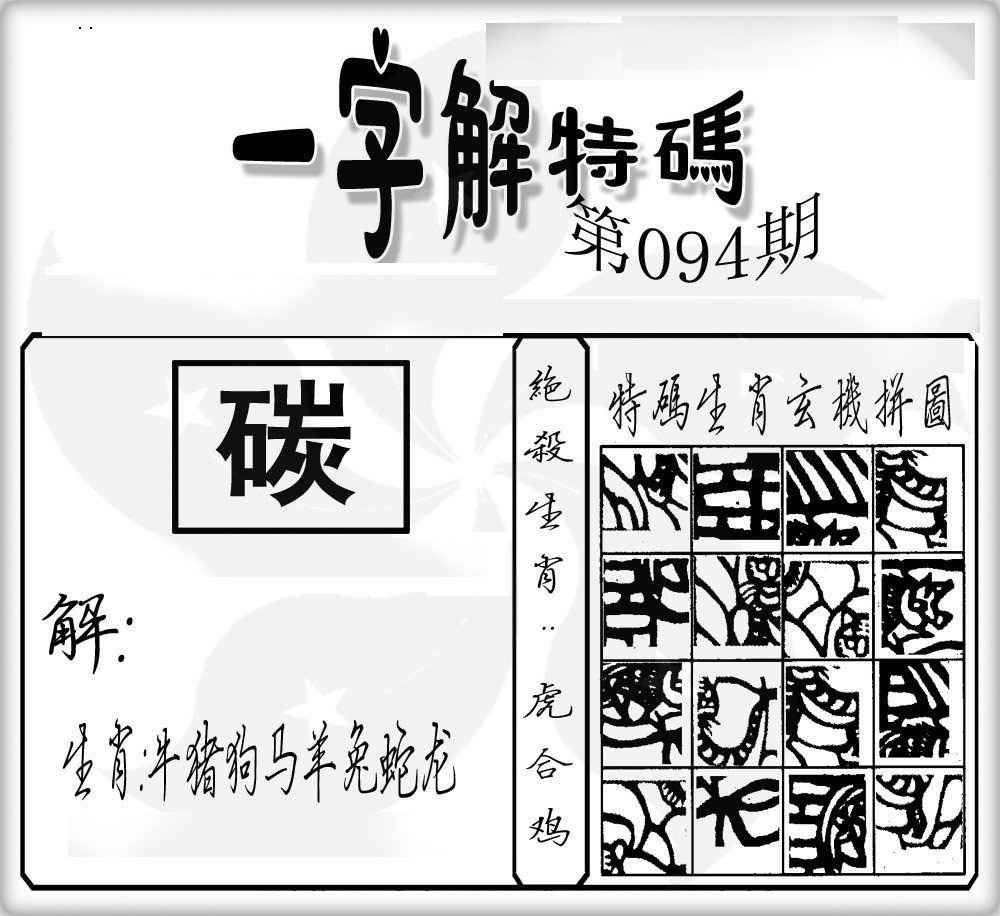 一字解特碼
第094期
碳
解:
生肖:牛猪狗马羊兔蛇龙
絶殺生肖:虎合鸡
特碼生肖玄機拼圖